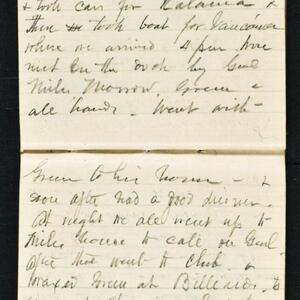 & took cars for Kalama &
then took boat for Vancouver
where we arrived 4 pm. were
met on the dock by Genl
Miles Morrow, Green &
all hands. Went with
Green to his house &
soon after had a good dinner.
At night we all went up to
Miles house to call on Genl
after that went to Club &
waxed Green at Billiards. &